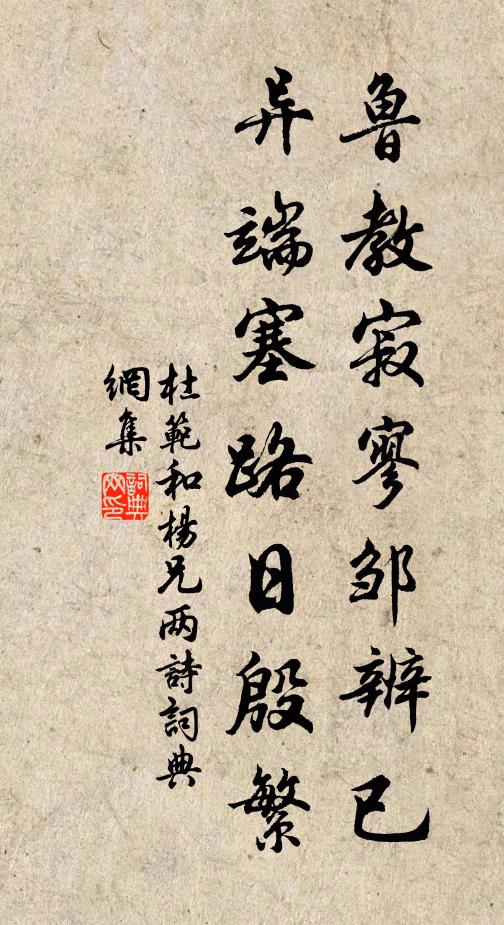 鲁教寂寥邹辨已
异端塞路日殷繁
杜範和楊兄两詩詞典
網集
詞典
网印